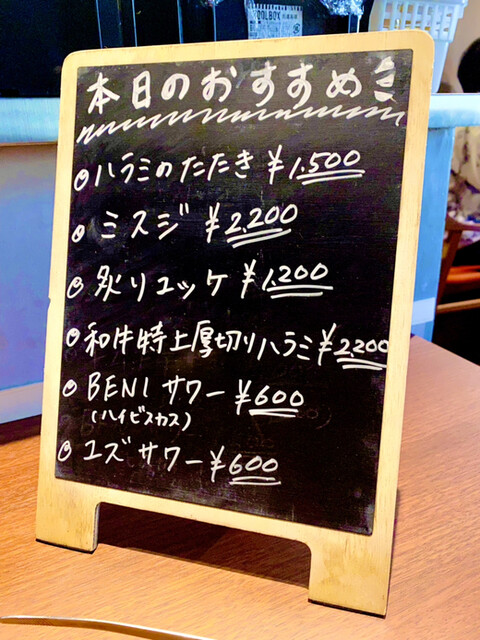 本日のおすすめ
ハラミのたたき ¥1,500
ミスジ ¥2,200
炙りユッケ ¥1,200
和牛特上厚切りハラミ ¥2,200
BENI サワー ¥600
(ハイビスカス)
ユズサワー ¥600